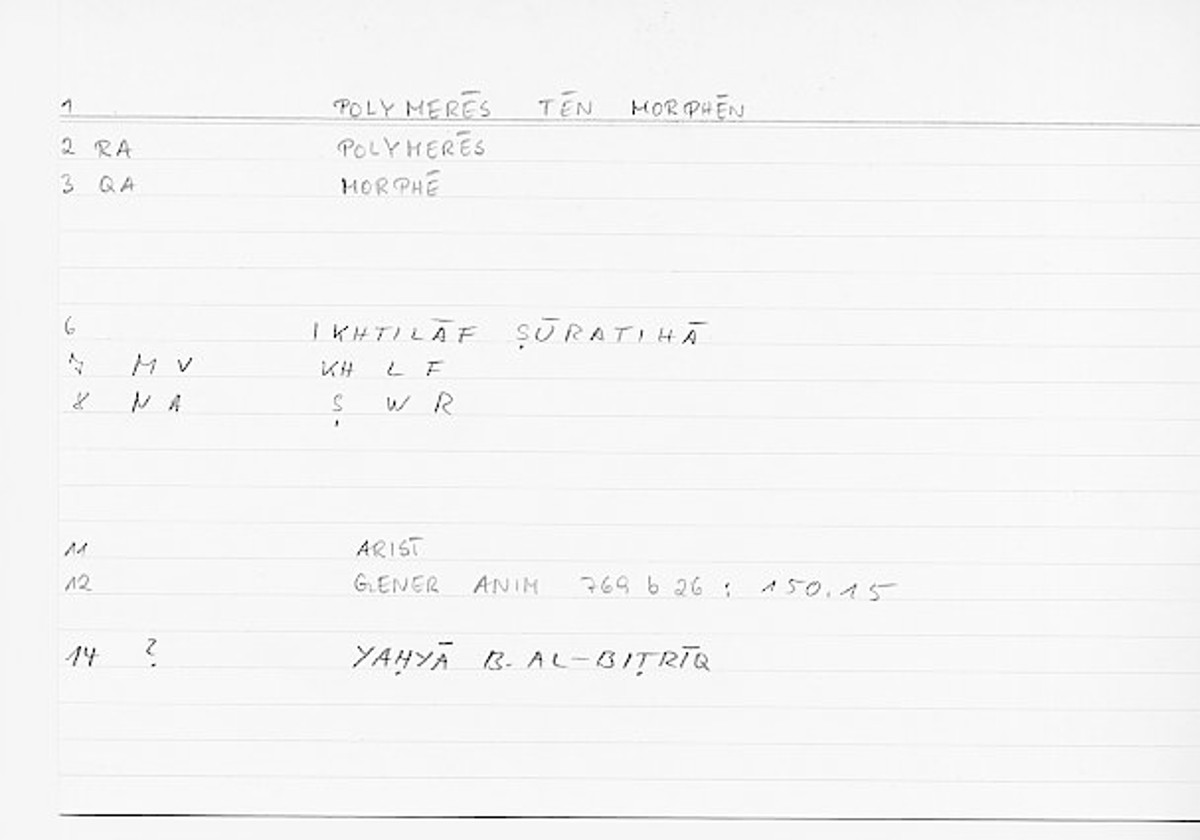 1 POLYMERĒS TĒN MORPHĒN
2 RA POLYMERĒS
3 QA MORPHĒ
6 IKHTILĀF ṢŪRATIHĀ
7 M V KH L F
8 N A Ṣ W R
11 ARIST
12 GENER ANIM 769 b 26 : 150.15
14 ? YAḤYĀ B. AL-BIṬRĪQ